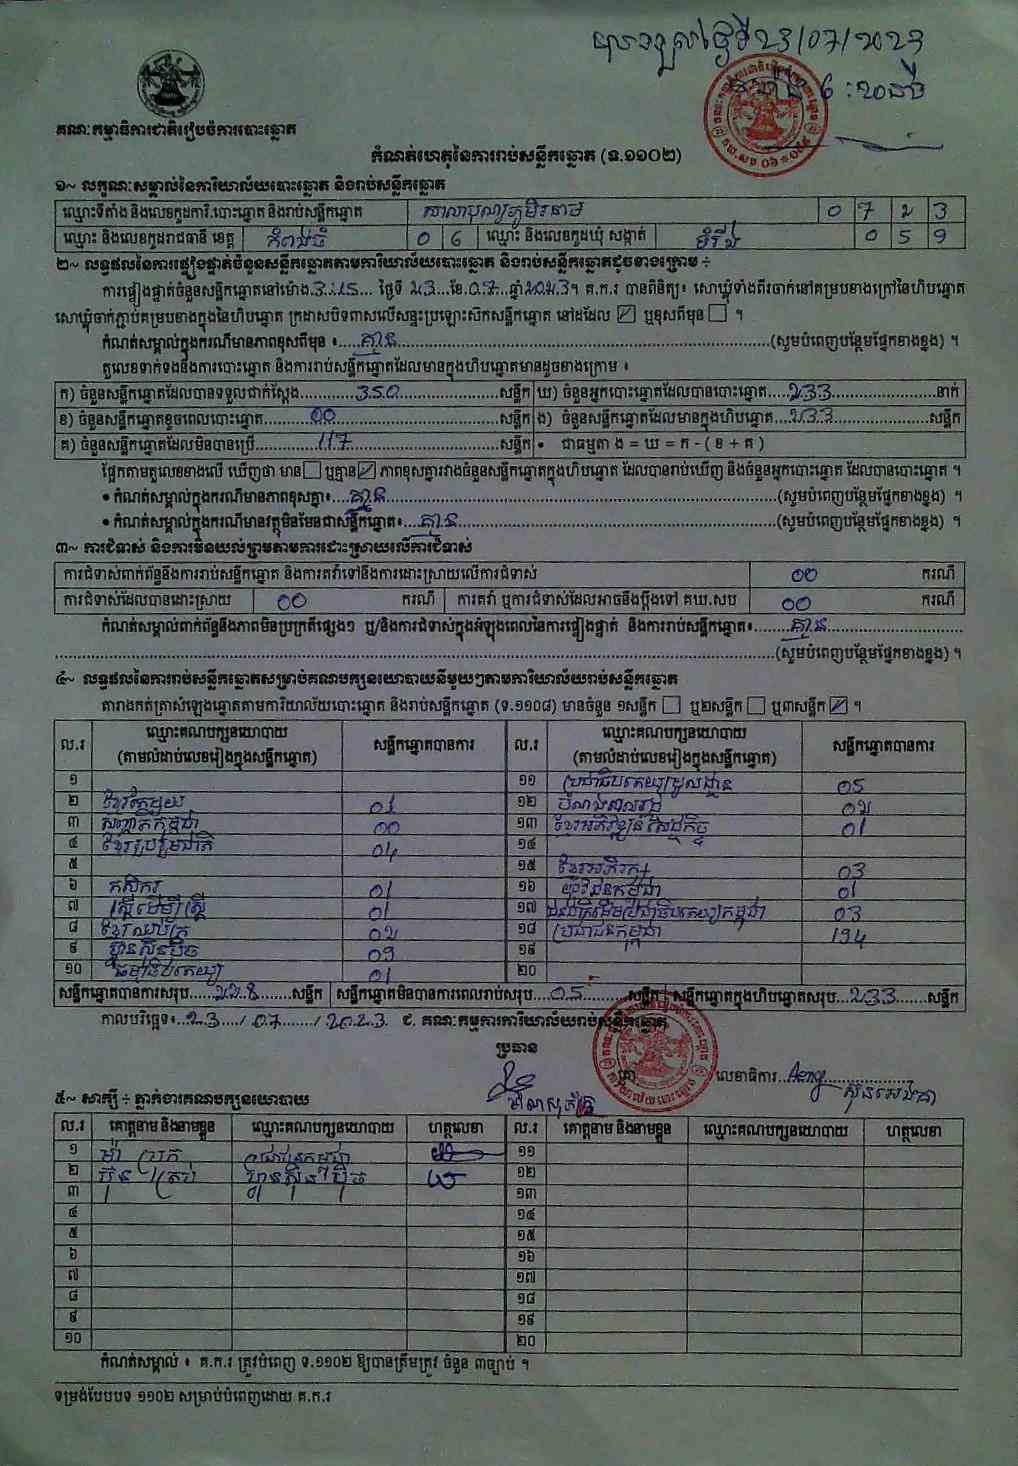 បានទទួលថ្ងៃទី23/07/2023
ម៉ោង 6:20នាទី
គណៈកម្មាធិការជាតិរៀបចំការបោះឆ្នោត
កំណត់ហេតុនៃការរាប់សន្លឹកឆ្នោត (ទ.១១០២)
១~ លក្ខណៈសម្គាល់នៃការិយាល័យបោះឆ្នោត និងរាប់សន្លឹកឆ្នោត
ឈ្មោះទីតាំង និងលេខកូដការិ.បោះឆ្នោត និងរាប់សន្លឹកឆ្នោត សាលាបុណ្យភូមិ 0 7 2 3
ឈ្មោះ និងលេខកូដរាជធានី ខេត្ត កំពង់ធំ 0 6 ឈ្មោះ និងលេខកូដឃុំ សង្កាត់ មីរីង 0 5 9
២~ លទ្ធផលនៃការផ្ទៀងផ្ទាត់ចំនួនសន្លឹកឆ្នោតតាមការិយាល័យបោះឆ្នោត និងរាប់សន្លឹកឆ្នោតដូចខាងក្រោម ÷
ការផ្ទៀងផ្ទាត់ចំនួនសន្លឹកឆ្នោតនៅម៉ោង 3:15 ថ្ងៃទី 23 ខែ 07 ឆ្នាំ 2023 ។ គ.ក.រ បានពិនិត្យ៖ សោឃ្លុំទាំងពីរចាក់នៅគម្របខាងក្រៅនៃហិបឆ្នោត
សោឃ្លុំចាក់ភ្ជាប់គម្របខាងក្នុងនៃហិបឆ្នោត ក្រដាសបិទពាសលើសន្ទះប្រឡោះស៊កសន្លឹកឆ្នោត នៅដដែល ☑ ឬខុសពីមុន ☐ ។
កំណត់សម្គាល់ក្នុងករណីមានភាពខុសពីមុន ៖ គ្មាន (សូមបំពេញបន្ថែមផ្នែកខាងខ្នង) ។
តួលេខទាក់ទងនឹងការបោះឆ្នោត និងការរាប់សន្លឹកឆ្នោតដែលមានក្នុងហិបឆ្នោតមានដូចខាងក្រោម ៖
ក) ចំនួនសន្លឹកឆ្នោតដែលបានទទួលជាក់ស្តែង 350 សន្លឹក ឃ) ចំនួនអ្នកបោះឆ្នោតដែលបានបោះឆ្នោត 233 នាក់
ខ) ចំនួនសន្លឹកឆ្នោតខូចពេលបោះឆ្នោត 00 សន្លឹក ង) ចំនួនសន្លឹកឆ្នោតដែលមានក្នុងហិបឆ្នោត 233 សន្លឹក
គ) ចំនួនសន្លឹកឆ្នោតដែលមិនបានប្រើ 117 សន្លឹក • ជាធម្មតា ង = ឃ = ក - ( ខ + គ )
ផ្អែកតាមតួលេខខាងលើ ឃើញថា មាន ☐ ឬគ្មាន ☑ ភាពខុសគ្នារវាងចំនួនសន្លឹកឆ្នោតក្នុងហិបឆ្នោត ដែលបានរាប់ឃើញ និងចំនួនអ្នកបោះឆ្នោត ដែលបានបោះឆ្នោត ។
• កំណត់សម្គាល់ក្នុងករណីមានភាពខុសគ្នា៖ គ្មាន (សូមបំពេញបន្ថែមផ្នែកខាងខ្នង) ។
• កំណត់សម្គាល់ក្នុងករណីមានវត្ថុមិនមែនជាសន្លឹកឆ្នោត៖ គ្មាន (សូមបំពេញបន្ថែមផ្នែកខាងខ្នង) ។
៣~ ការជំទាស់ និងការមិនយល់ព្រមតាមការដោះស្រាយលើការជំទាស់
ការជំទាស់ពាក់ព័ន្ធនឹងការរាប់សន្លឹកឆ្នោត និងការតវ៉ាទៅនឹងការដោះស្រាយលើការជំទាស់ 00 ករណី
ការជំទាស់ដែលបានដោះស្រាយ 00 ករណី ការតវ៉ា ឬការជំទាស់ដែលអាចនឹងប្តឹងទៅ គឃ.សប 00 ករណី
កំណត់សម្គាល់ពាក់ព័ន្ធនឹងភាពមិនប្រក្រតីផ្សេងៗ ឬ/និងការជំទាស់ក្នុងអំឡុងពេលនៃការផ្ទៀងផ្ទាត់ និងការរាប់សន្លឹកឆ្នោត៖ គ្មាន
(សូមបំពេញបន្ថែមផ្នែកខាងខ្នង) ។
៤~ លទ្ធផលនៃការរាប់សន្លឹកឆ្នោតសម្រាប់គណបក្សនយោបាយនីមួយៗតាមការិយាល័យរាប់សន្លឹកឆ្នោត
តារាងកត់ត្រាសំឡេងឆ្នោតតាមការិយាល័យបោះឆ្នោត និងរាប់សន្លឹកឆ្នោត (ទ.១១០៨) មានចំនួន ១សន្លឹក ☐ ឬ២សន្លឹក ☐ ឬ៣សន្លឹក ☑ ។
ល.រ ឈ្មោះគណបក្សនយោបាយ (តាមលំដាប់លេខរៀងក្នុងសន្លឹកឆ្នោត) សន្លឹកឆ្នោតបានការ ល.រ ឈ្មោះគណបក្សនយោបាយ (តាមលំដាប់លេខរៀងក្នុងសន្លឹកឆ្នោត) សន្លឹកឆ្នោតបានការ
១ ១១ ប្រជាធិបតេយ្យមូលដ្ឋាន 05
២ ខ្មែរតែមួយ 01 ១២ បំណងពលរដ្ឋ 02
៣ សញ្ជាតិកម្ពុជា 00 ១៣ ខ្មែរអភិវឌ្ឍន៍សេដ្ឋកិច្ច 01
៤ ខ្មែររួបរួមជាតិ 04 ១៤
៥ ១៥ ខ្មែរអភិរក្ស 03
៦ កសិករ 01 ១៦ យុវជនកម្ពុជា 01
៧ ស្ត្រីដើម្បីស្ត្រី 01 ១៧ ជនជាតិដើមប្រជាធិបតេយ្យកម្ពុជា 03
៨ ខ្មែរឈប់ក្រ 02 ១៨ ប្រជាជនកម្ពុជា 194
៩ ហ្វ៊ុនស៊ិនប៉ិច 09 ១៩
១០ ធម្មាធិបតេយ្យ 01 ២០
សន្លឹកឆ្នោតបានការសរុប 228 សន្លឹក សន្លឹកឆ្នោតមិនបានការពេលរាប់សរុប 05 សន្លឹក សន្លឹកឆ្នោតក្នុងហិបឆ្នោតសរុប 233 សន្លឹក
កាលបរិច្ឆេទ៖ 23 / 07 / 2023 ជ. គណៈកម្មការការិយាល័យរាប់សន្លឹកឆ្នោត
ប្រធាន
លេខាធិការ
៥~ សាក្សី ÷ ភ្នាក់ងារគណបក្សនយោបាយ
ល.រ គោត្តនាម និងនាមខ្លួន ឈ្មោះគណបក្សនយោបាយ ហត្ថលេខា ល.រ គោត្តនាម និងនាមខ្លួន ឈ្មោះគណបក្សនយោបាយ ហត្ថលេខា
១ ម៉ា ប្រជាជនកម្ពុជា ១១
២ ប៊ុន ហ្វ៊ុនស៊ិនប៉ិច ១២
៣ ១៣
៤ ១៤
៥ ១៥
៦ ១៦
៧ ១៧
៨ ១៨
៩ ១៩
១០ ២០
កំណត់សម្គាល់ ៖ គ.ក.រ ត្រូវបំពេញ ទ.១១០២ ឱ្យបានត្រឹមត្រូវ ចំនួន ៣ច្បាប់ ។
ទម្រង់បែបបទ ១១០២ សម្រាប់បំពេញដោយ គ.ក.រ